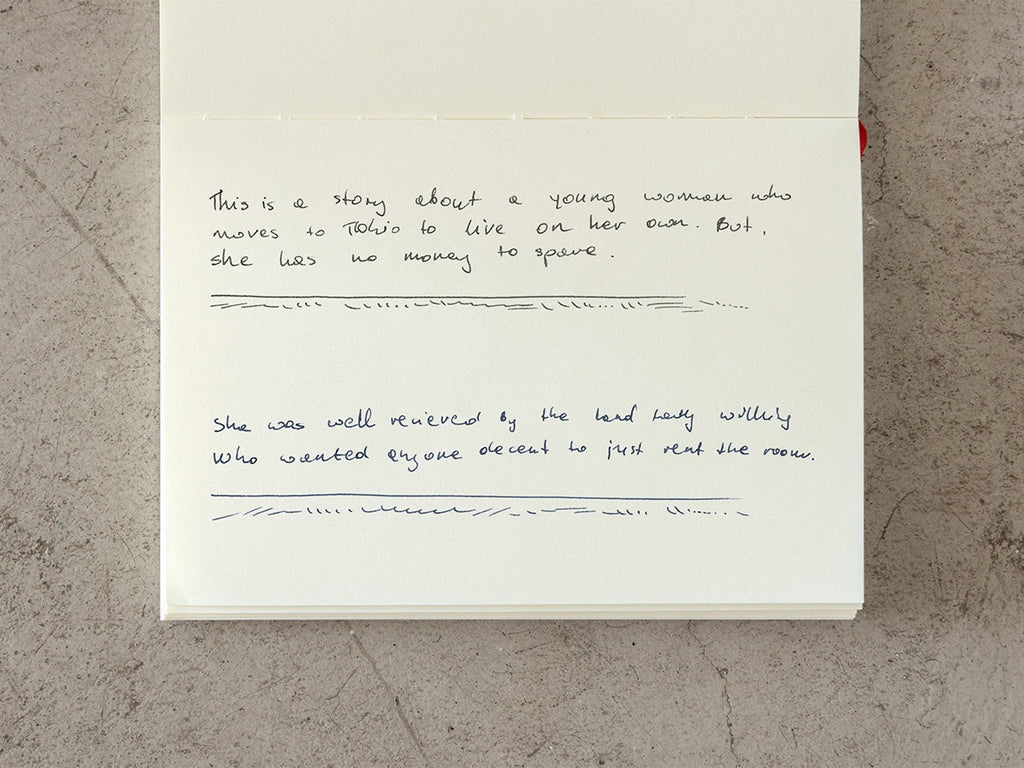 This is a story about a young woman who
moves to Tokio to live on her own. But,
she has no money to spare.
She was well recieved by the land lady
who wanted anyone decent to just rent the room.